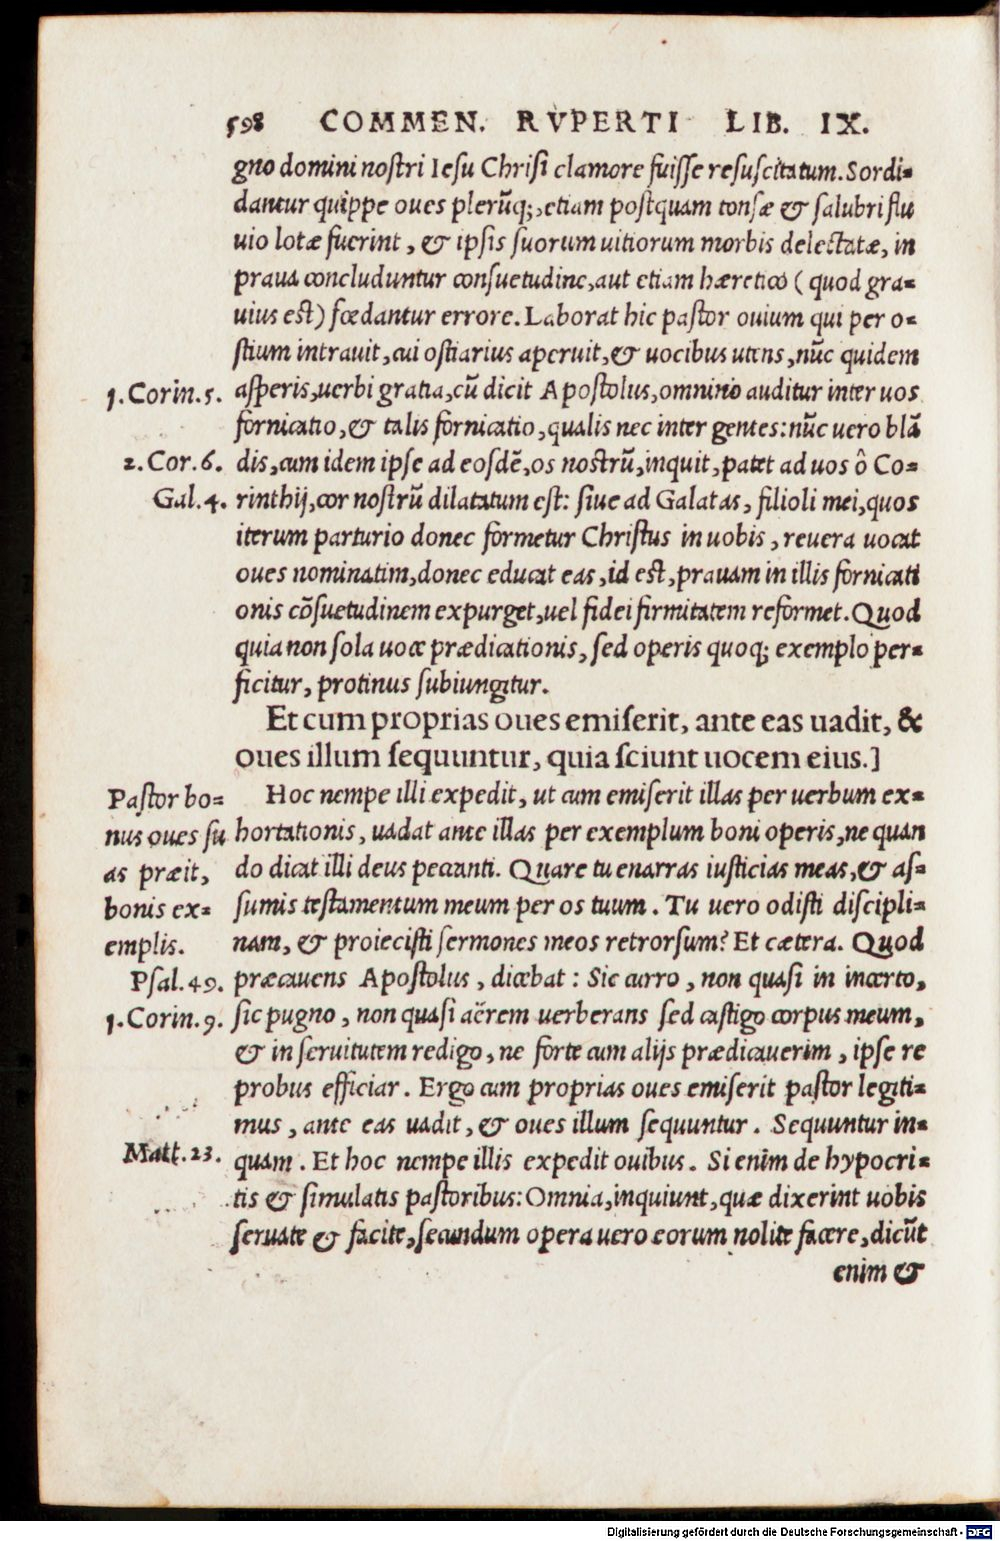 598 COMMEN. RVPERTI LIB. IX.
gno domini nostri Iesu Christi clamore fuisse resuscitatum. Sordi=
dantur quippe oues plerũq;, etiam postquam tonsæ & salubri flu
uio lotæ fuerint, & ipsis suorum uitiorum morbis delectatæ, in
praua concluduntur consuetudine, aut etiam hæretico (quod gra=
uius est) fœdantur errore. Laborat hic pastor ouium qui per o=
stium intrauit, cui ostiarius aperuit, & uocibus utens, nũc quidem
1. Corin. 5. asperis, uerbi gratia, cũ dicit Apostolus, omnino auditur inter uos
fornicatio, & talis fornicatio, qualis nec inter gentes: nũc uero blã
2. Cor. 6. dis, cum idem ipse ad eosdẽ, os nostrũ, inquit, patet ad uos ô Co=
Gal. 4. rinthij, cor nostrũ dilatatum est: siue ad Galatas, filioli mei, quos
iterum parturio donec formetur Christus in uobis, reuera uocat
oues nominatim, donec educat eas, id est, prauam in illis fornicati
onis cõsuetudinem expurget, uel fidei firmitatem reformet. Quod
quia non sola uoce prædicationis, sed operis quoq; exemplo per=
ficitur, protinus subiungitur.
Et cum proprias oues emiserit, ante eas uadit, &
oues illum sequuntur, quia sciunt uocem eius.]
Pastor bo= Hoc nempe illi expedit, ut cum emiserit illas per uerbum ex=
nus oues su hortationis, uadat ante illas per exemplum boni operis, ne quan
as præit, do dicat illi deus peccanti. Quare tu enarras iusticias meas, & as=
bonis ex= sumis testamentum meum per os tuum. Tu uero odisti discipli=
emplis. nam, & proiecisti sermones meos retrorsum? Et cætera. Quod
Psal. 49. præcauens Apostolus, dicebat: Sic curro, non quasi in incerto,
1. Corin. 9. sic pugno, non quasi aërem uerberans sed castigo corpus meum,
& in seruitutem redigo, ne forte cum alijs prædicauerim, ipse re
probus efficiar. Ergo cum proprias oues emiserit pastor legiti=
mus, ante eas uadit, & oues illum sequuntur. Sequuntur in=
Matt. 23. quam. Et hoc nempe illis expedit ouibus. Si enim de hypocri=
tis & simulatis pastoribus: Omnia, inquiunt, quæ dixerint uobis
seruate & facite, secundum opera uero eorum nolite facere, dicũt
enim &
Digitalisierung gefördert durch die Deutsche Forschungsgemeinschaft - DFG